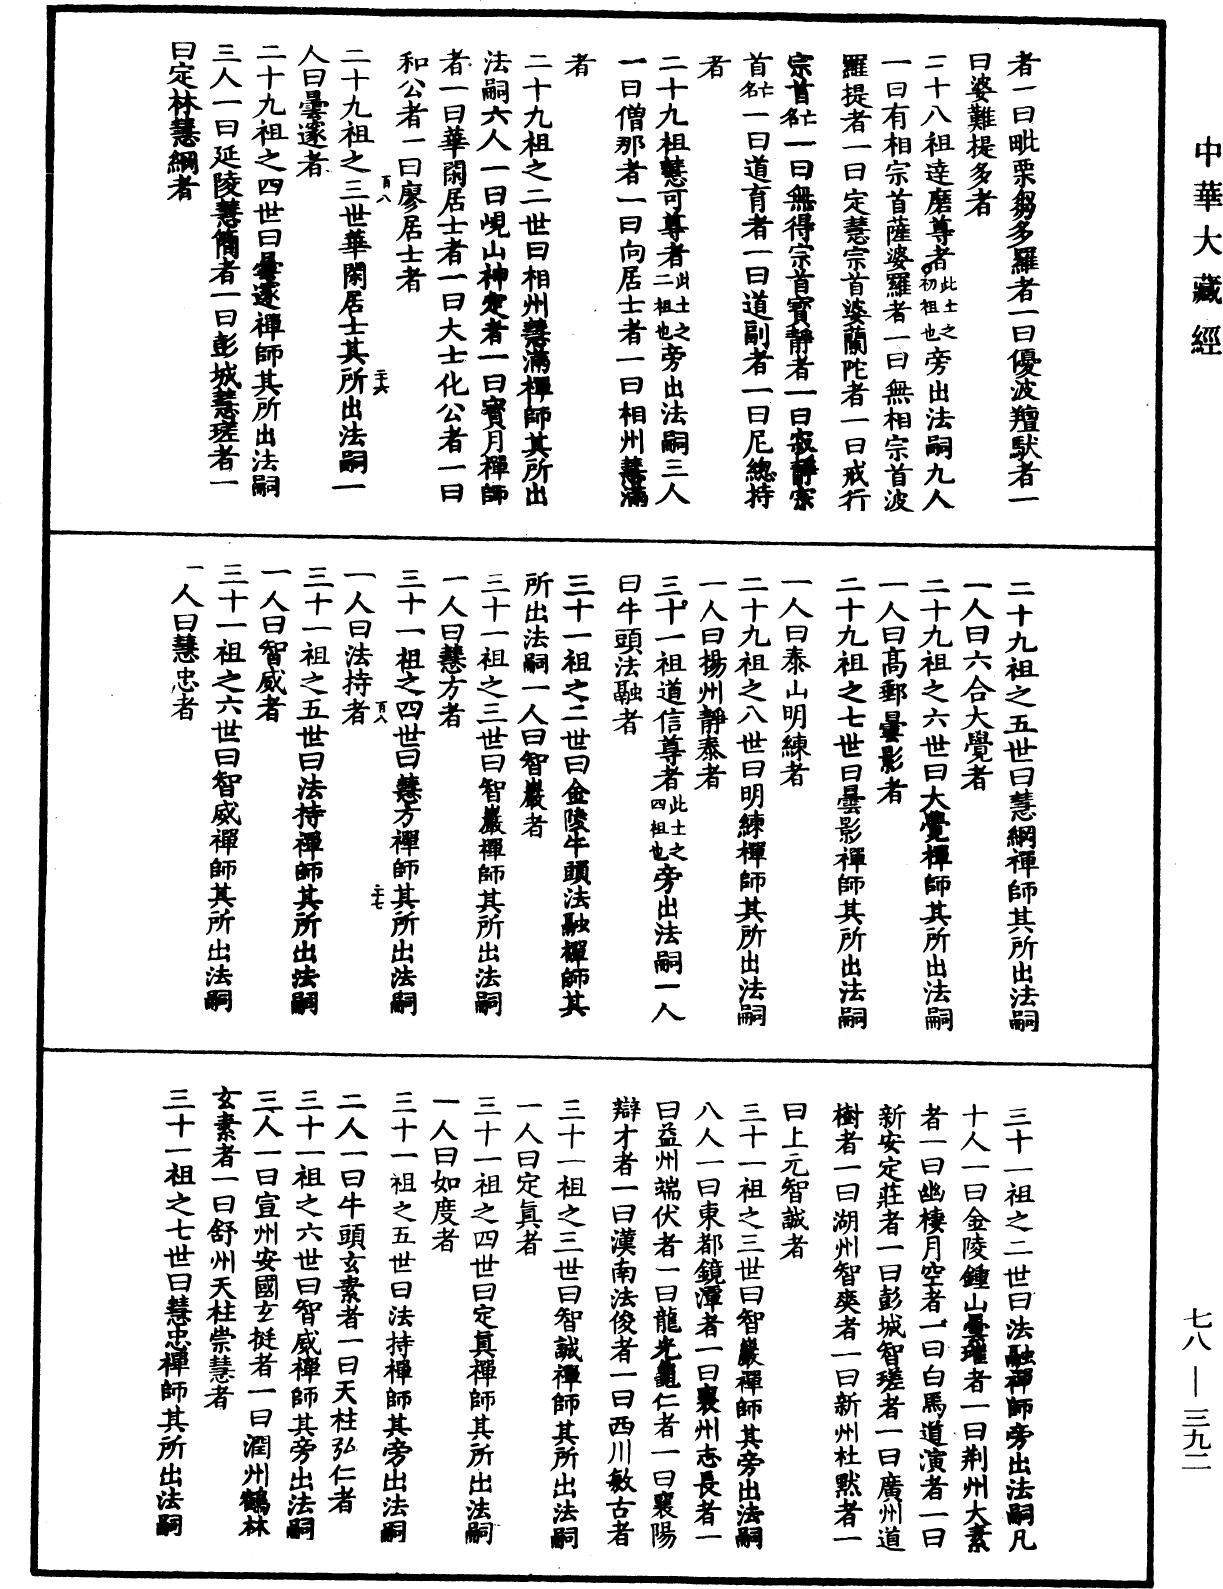 中華大藏經
者一曰毗栗芻多羅者一曰優波羶馱者一
曰婆難提多者
二十八祖達磨尊者此土之初祖也旁出法嗣九人
一曰有相宗首薩婆羅者一曰無相宗首波
羅提者一曰定慧宗首婆蘭陀者一曰戒行
宗首亡名一曰無得宗首寶靜者一曰寂靜宗
首亡名一曰道育者一曰道副者一曰尼總持
者
二十九祖慧可尊者此土之二祖也旁出法嗣三人
一曰僧那者一曰向居士者一曰相州慧滿
者
二十九祖之二世曰相州慧滿禪師其所出
法嗣六人一曰峴山神定者一曰寶月禪師
者一曰華閑居士者一曰大士化公者一曰
和公者一曰廖居士者
百八
二十六
二十九祖之三世華閑居士其所出法嗣一
人曰曇邃者
二十九祖之四世曰曇邃禪師其所出法嗣
三人一曰延陵慧簡者一曰彭城慧瑳者一
曰定林慧綱者
二十九祖之五世曰慧綱禪師其所出法嗣
一人曰六合大覺者
二十九祖之六世曰大覺禪師其所出法嗣
一人曰高郵曇影者
二十九祖之七世曰曇影禪師其所出法嗣
一人曰泰山明練者
二十九祖之八世曰明練禪師其所出法嗣
一人曰揚州靜泰者
三十一祖道信尊者此土之四祖也旁出法嗣一人
曰牛頭法融者
三十一祖之二世曰金陵牛頭法融禪師其
所出法嗣一人曰智巖者
三十一祖之三世曰智巖禪師其所出法嗣
一人曰慧方者
三十一祖之四世曰慧方禪師其所出法嗣
百八
二十七
一人曰法持者
三十一祖之五世曰法持禪師其所出法嗣
一人曰智威者
三十一祖之六世曰智威禪師其所出法嗣
一人曰慧忠者
三十一祖之二世曰法融禪師旁出法嗣凡
十人一曰金陵鍾山曇璀者一曰荆州大素
者一曰幽棲月空者一曰白馬道演者一曰
新安定莊者一曰彭城智瑳者一曰廣州道
樹者一曰湖州智爽者一曰新州杜黙者一
曰上元智誠者
三十一祖之三世曰智巖禪師其旁出法嗣
八人一曰東都鏡潭者一曰襄州志長者一
曰益州端伏者一曰龍光龜仁者一曰襄陽
辯才者一曰漢南法俊者一曰西川敏古者
三十一祖之三世曰智誠禪師其所出法嗣
一人曰定真者
三十一祖之四世曰定真禪師其所出法嗣
一人曰如度者
三十一祖之五世曰法持禪師其旁出法嗣
二人一曰牛頭玄素者一曰天柱弘仁者
三十一祖之六世曰智威禪師其旁出法嗣
三人一曰宣州安國玄挺者一曰潤州鶴林
玄素者一曰舒州天柱崇慧者
三十一祖之七世曰慧忠禪師其所出法嗣
七八—三九二